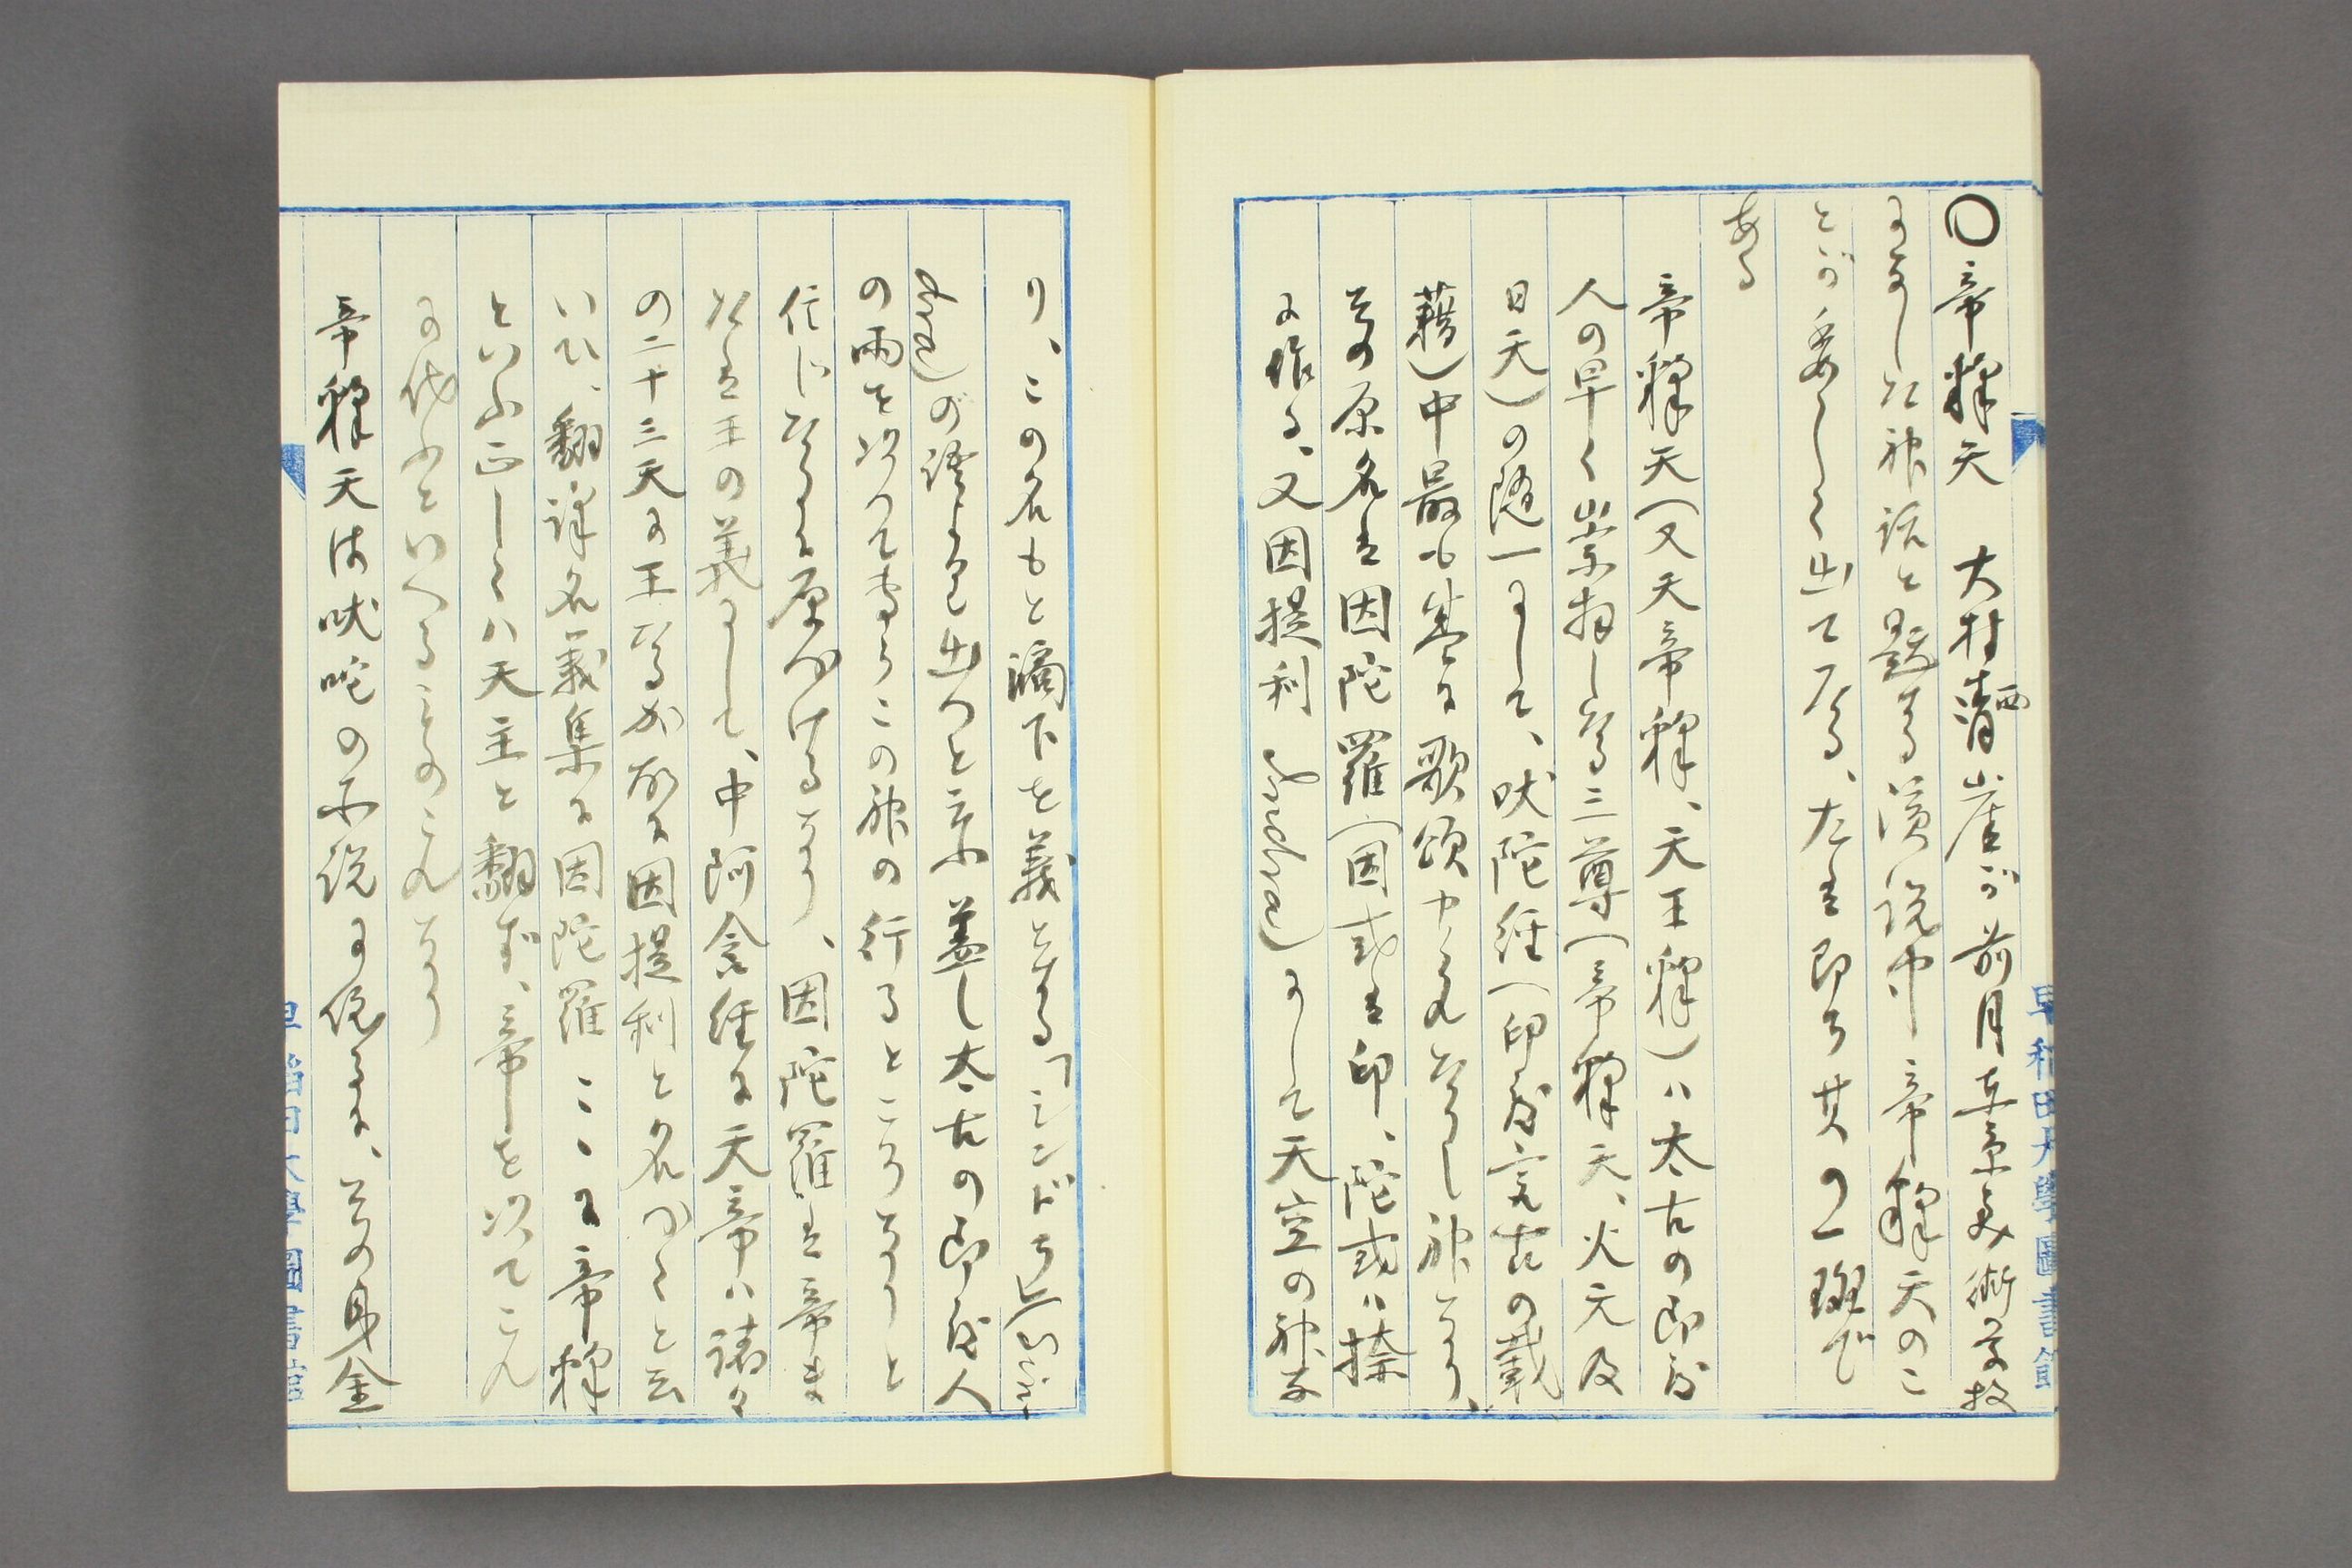 ○帝釋天 大村西崖が前月東京美術学校
にてなした神話と題する演説中帝釋天のこ
とが委しく出て居る、左は即ち其の一斑で
ある
帝釋天(又天帝釋、天王釋)ハ太古の印度
人の早く崇拝しなる三尊(帝釋天、火天及
日天)の随一にして、吠陀経(印度最古の載
籍)中最も盛に歌頌せられたりし神なり、
その原名は因陀羅(因或は印、陀或ハ捺
に作る、又因提利 )にして天空の神な
り、この名もと滴下を義とする「シンド」
の語より出づと云ふ蓋し太古の印度人
の雨を以て専らこの神の行るところなりと
信じなるに原づけるなり、因陀羅は帝ま
たは王の義にして、中阿含経に天帝ハ諸天
の三十三天の王なるが故に因提利と名づくと云
いひ、翻譯名義集に因陀羅 こゝに帝釋
といふ正しくハ天主と翻ず、帝を以てこれ
に代ふといへるものこれなり
帝釋天は吠陀の所説に依るに、その身金
早稲田大學圖書館
早稲田大學圖書館